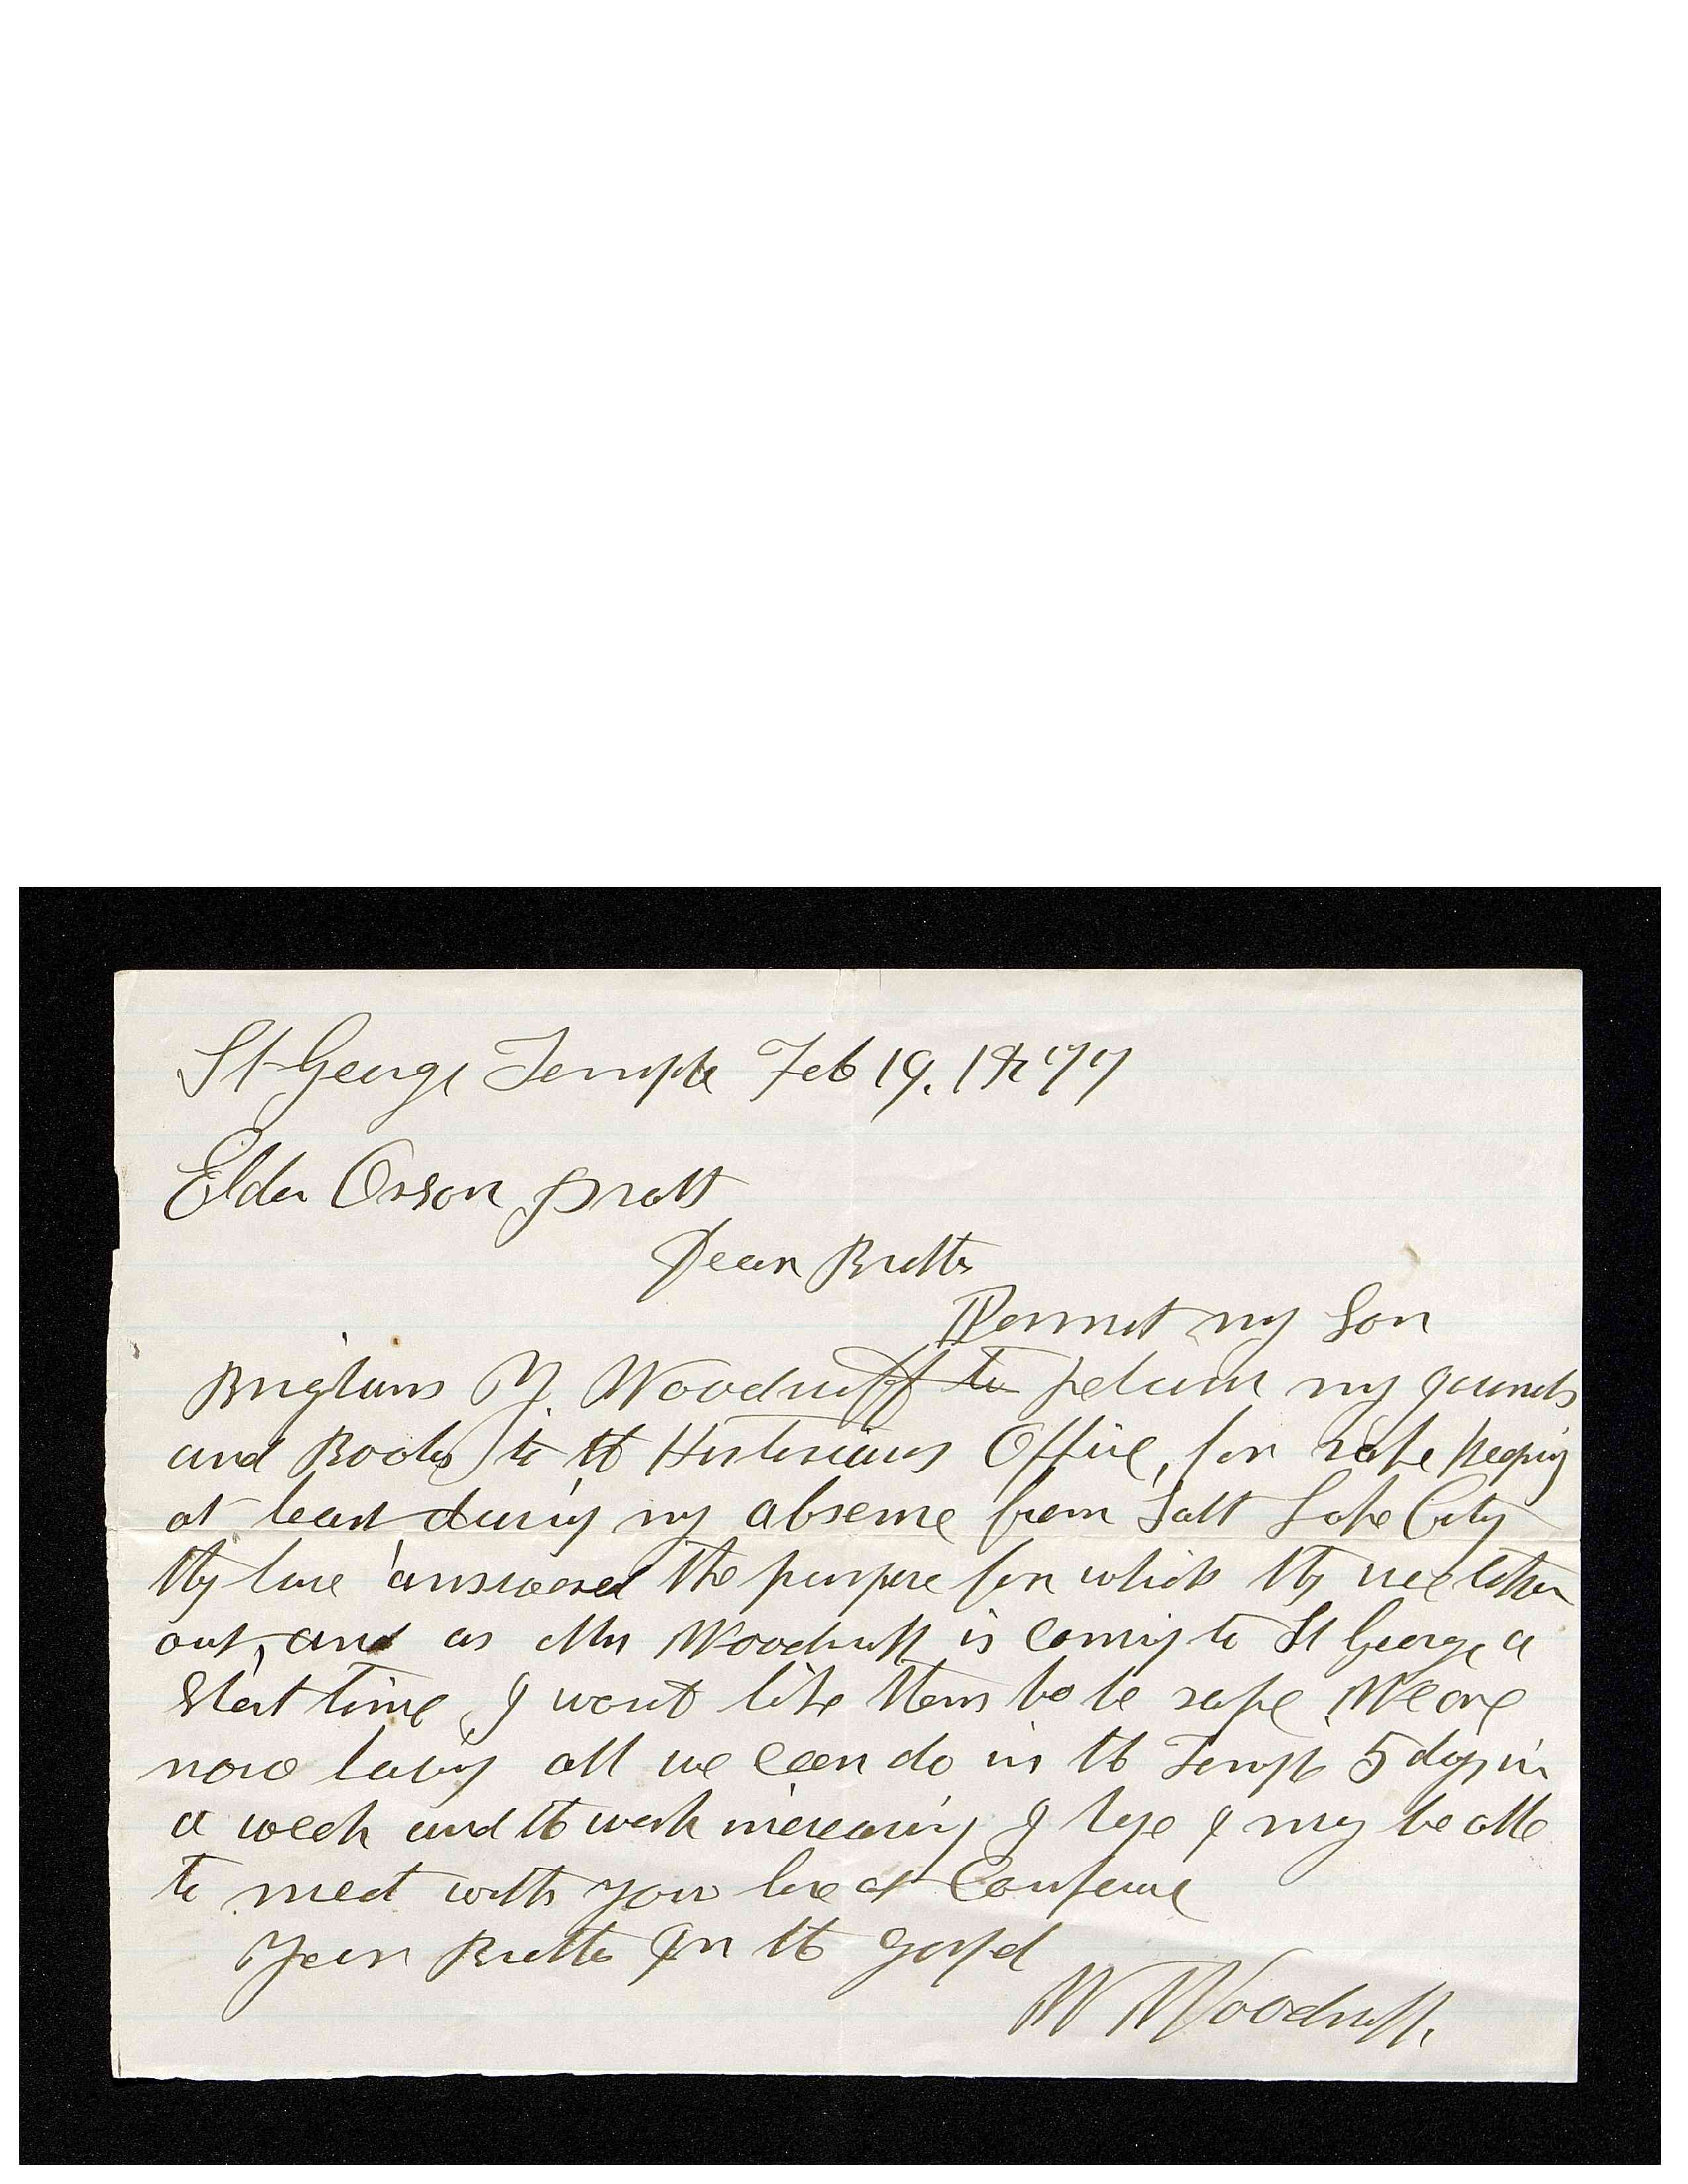 St George Temple Feb 19, 1877
Elder Orson Pratt
Dear Brother
Permit my Son
Brigham Y. Woodruff to return my Journals
and Books to the Historians Office, for safe keeping
at least during my absence from Salt Lake City
they have answered the purpose for which they were taken
out, and as Mrs Woodruff is coming to St George a
short time, I want like them to be safe. We are
now doing all we can do in the Temple 5 days in
a week and the work increasing I hope I may be able
to meet with you here at Conference
Your Brother In the gospel
W Woodruff.